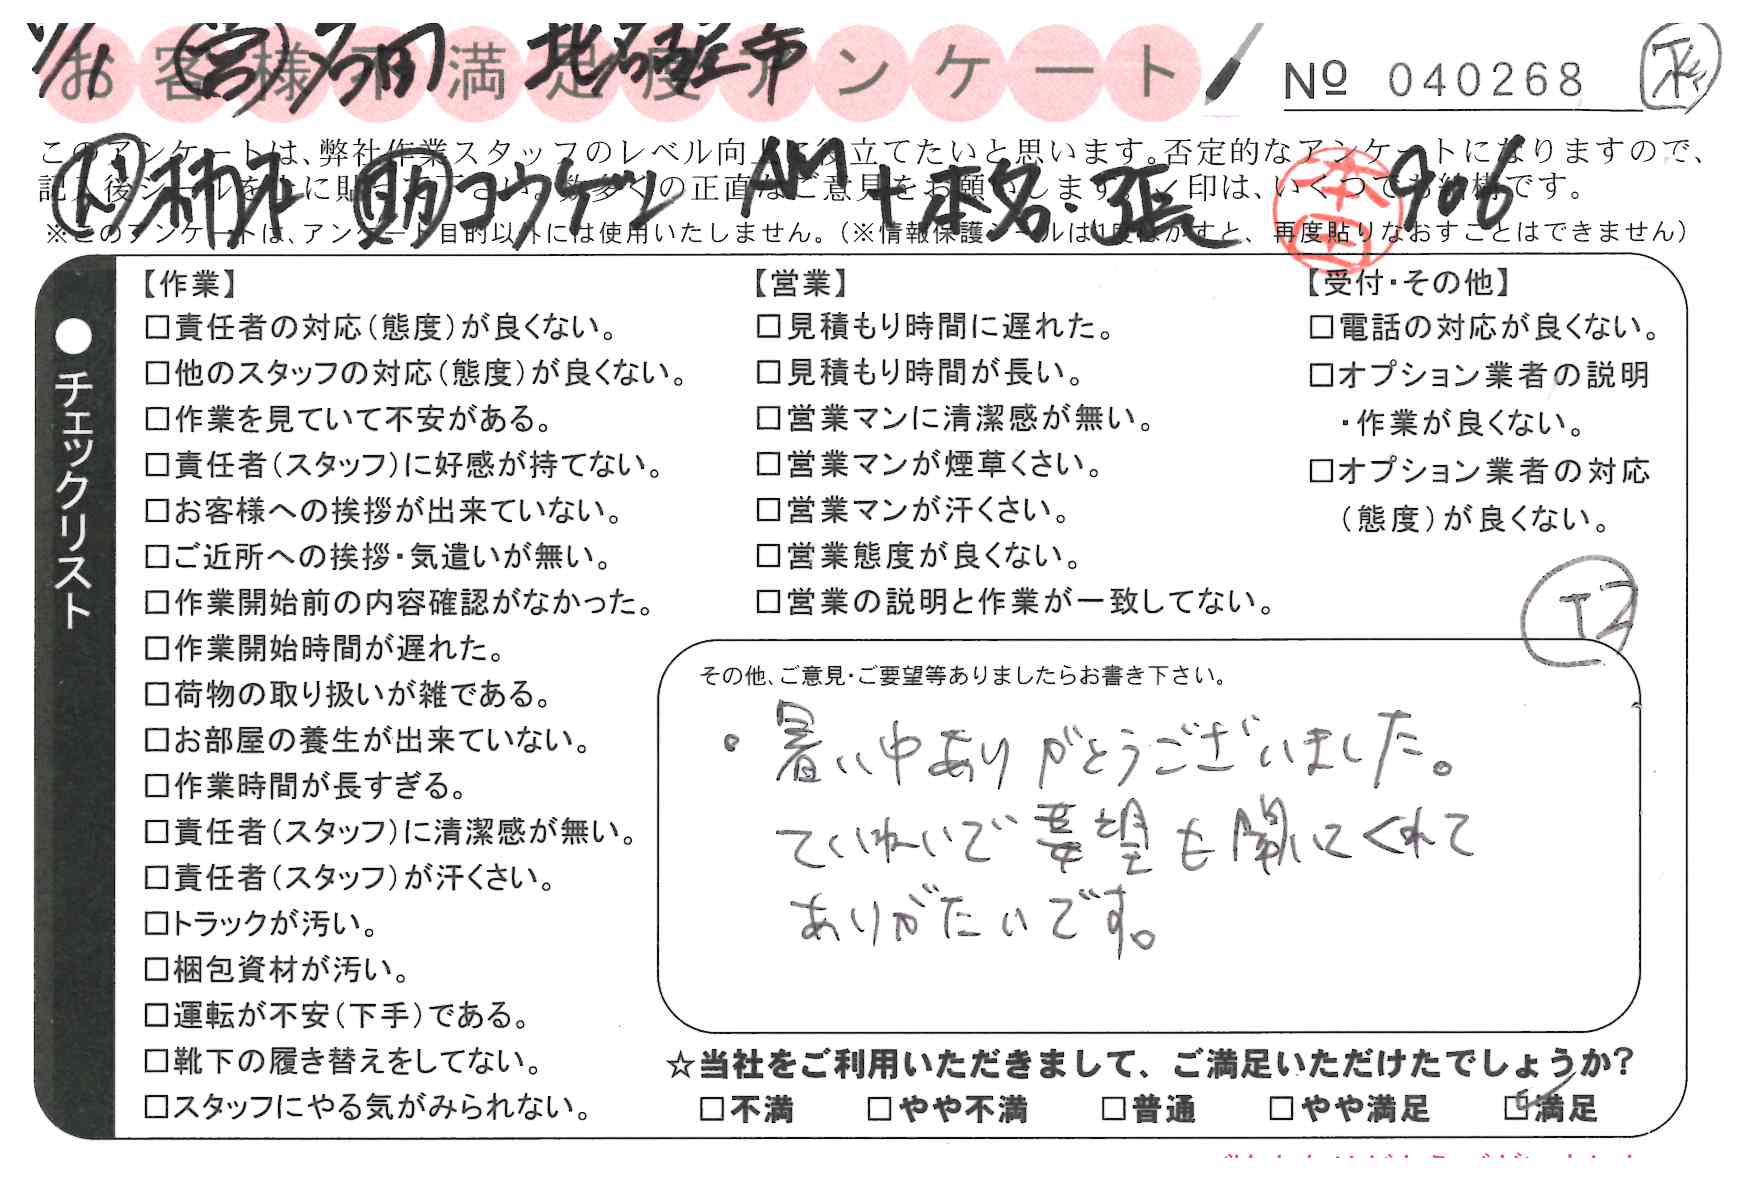 お客様不満足度アンケート
No 040268
北名古屋市
このアンケートは、弊社作業スタッフのレベル向上に役立てたいと思います。否定的なアンケートになりますので、
※このアンケートは、アンケート目的以外には使用いたしません。（※情報保護シールは1度はがすと、再度貼りなおすことはできません）
コウケン AM 906
本田
●チェックリスト
【作業】
□責任者の対応（態度）が良くない。
□他のスタッフの対応（態度）が良くない。
□作業を見ていて不安がある。
□責任者（スタッフ）に好感が持てない。
□お客様への挨拶が出来ていない。
□ご近所への挨拶・気遣いが無い。
□作業開始前の内容確認がなかった。
□作業開始時間が遅れた。
□荷物の取り扱いが雑である。
□お部屋の養生が出来ていない。
□作業時間が長すぎる。
□責任者（スタッフ）に清潔感が無い。
□責任者（スタッフ）が汗くさい。
□トラックが汚い。
□梱包資材が汚い。
□運転が不安（下手）である。
□靴下の履き替えをしてない。
□スタッフにやる気がみられない。
【営業】
□見積もり時間に遅れた。
□見積もり時間が長い。
□営業マンに清潔感が無い。
□営業マンが煙草くさい。
□営業マンが汗くさい。
□営業態度が良くない。
□営業の説明と作業が一致してない。
【受付・その他】
□電話の対応が良くない。
□オプション業者の説明
・作業が良くない。
□オプション業者の対応
（態度）が良くない。
その他、ご意見・ご要望等ありましたらお書き下さい。
・暑い中ありがとうございました。
ていねいで要望も聞いてくれて
ありがたいです。
☆当社をご利用いただきまして、ご満足いただけたでしょうか？
□不満 □やや不満 □普通 □やや満足 ☑満足